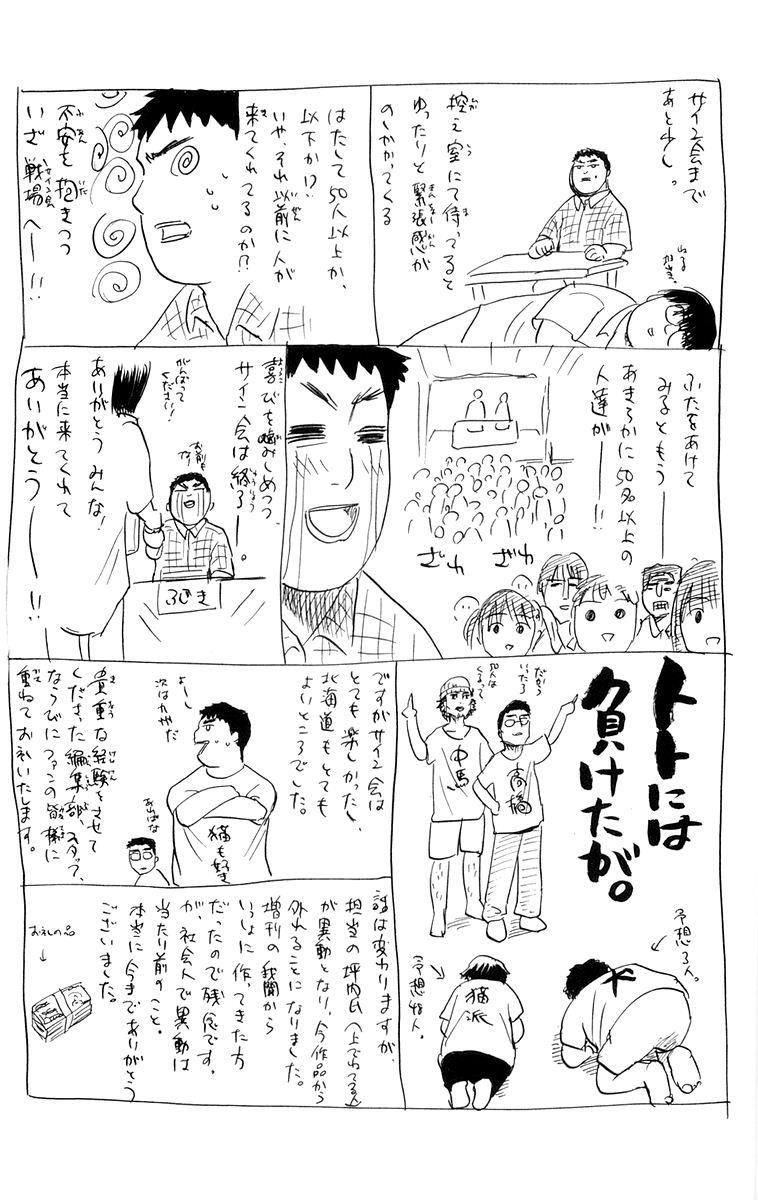 サイン会まで
あと少し。
控え室にて待ってると
ゆったりと緊張感が
のしかかってくる
ねる
担当。
はたして50人以上か、
以下か!?
いや、それ以前に人が
来てくれてるのか!?
不安を抱きつつ
いざ戦場へー!!
サイン会
ふたをあけて
みるともう――
あきらかに50名以上の
人達が――!!
ざわ
ざわ
喜びを噛みしめつつ、
サイン会は終了―。
お前もな
がんばって
ください!
ありがとうみんな!
本当に来てくれて
ありがとう――!!
ふじき
トトには
負けたが。
だから
いったろ
みんな
くるって
中馬
高橋
予想3人。
猫派
ですがサイン会は
とても楽しかったし、
北海道もとても
よいところでした。
よーし
次はカゲだ
猫も好き
貴重な経験をさせて
くださった編集部、スタッフ、
ならびにファンの皆様に
重ねてお礼いたします。
話は変わりますが、
担当の坪内氏(上でねてる人)
が異動となり、今作品から
外れることになりました。
増刊の我聞から
いっしょに作ってきた方
だったので残念です。
が、社会人で異動は
当たり前のこと。
本当に今までありがとう
ございました。
お礼の品